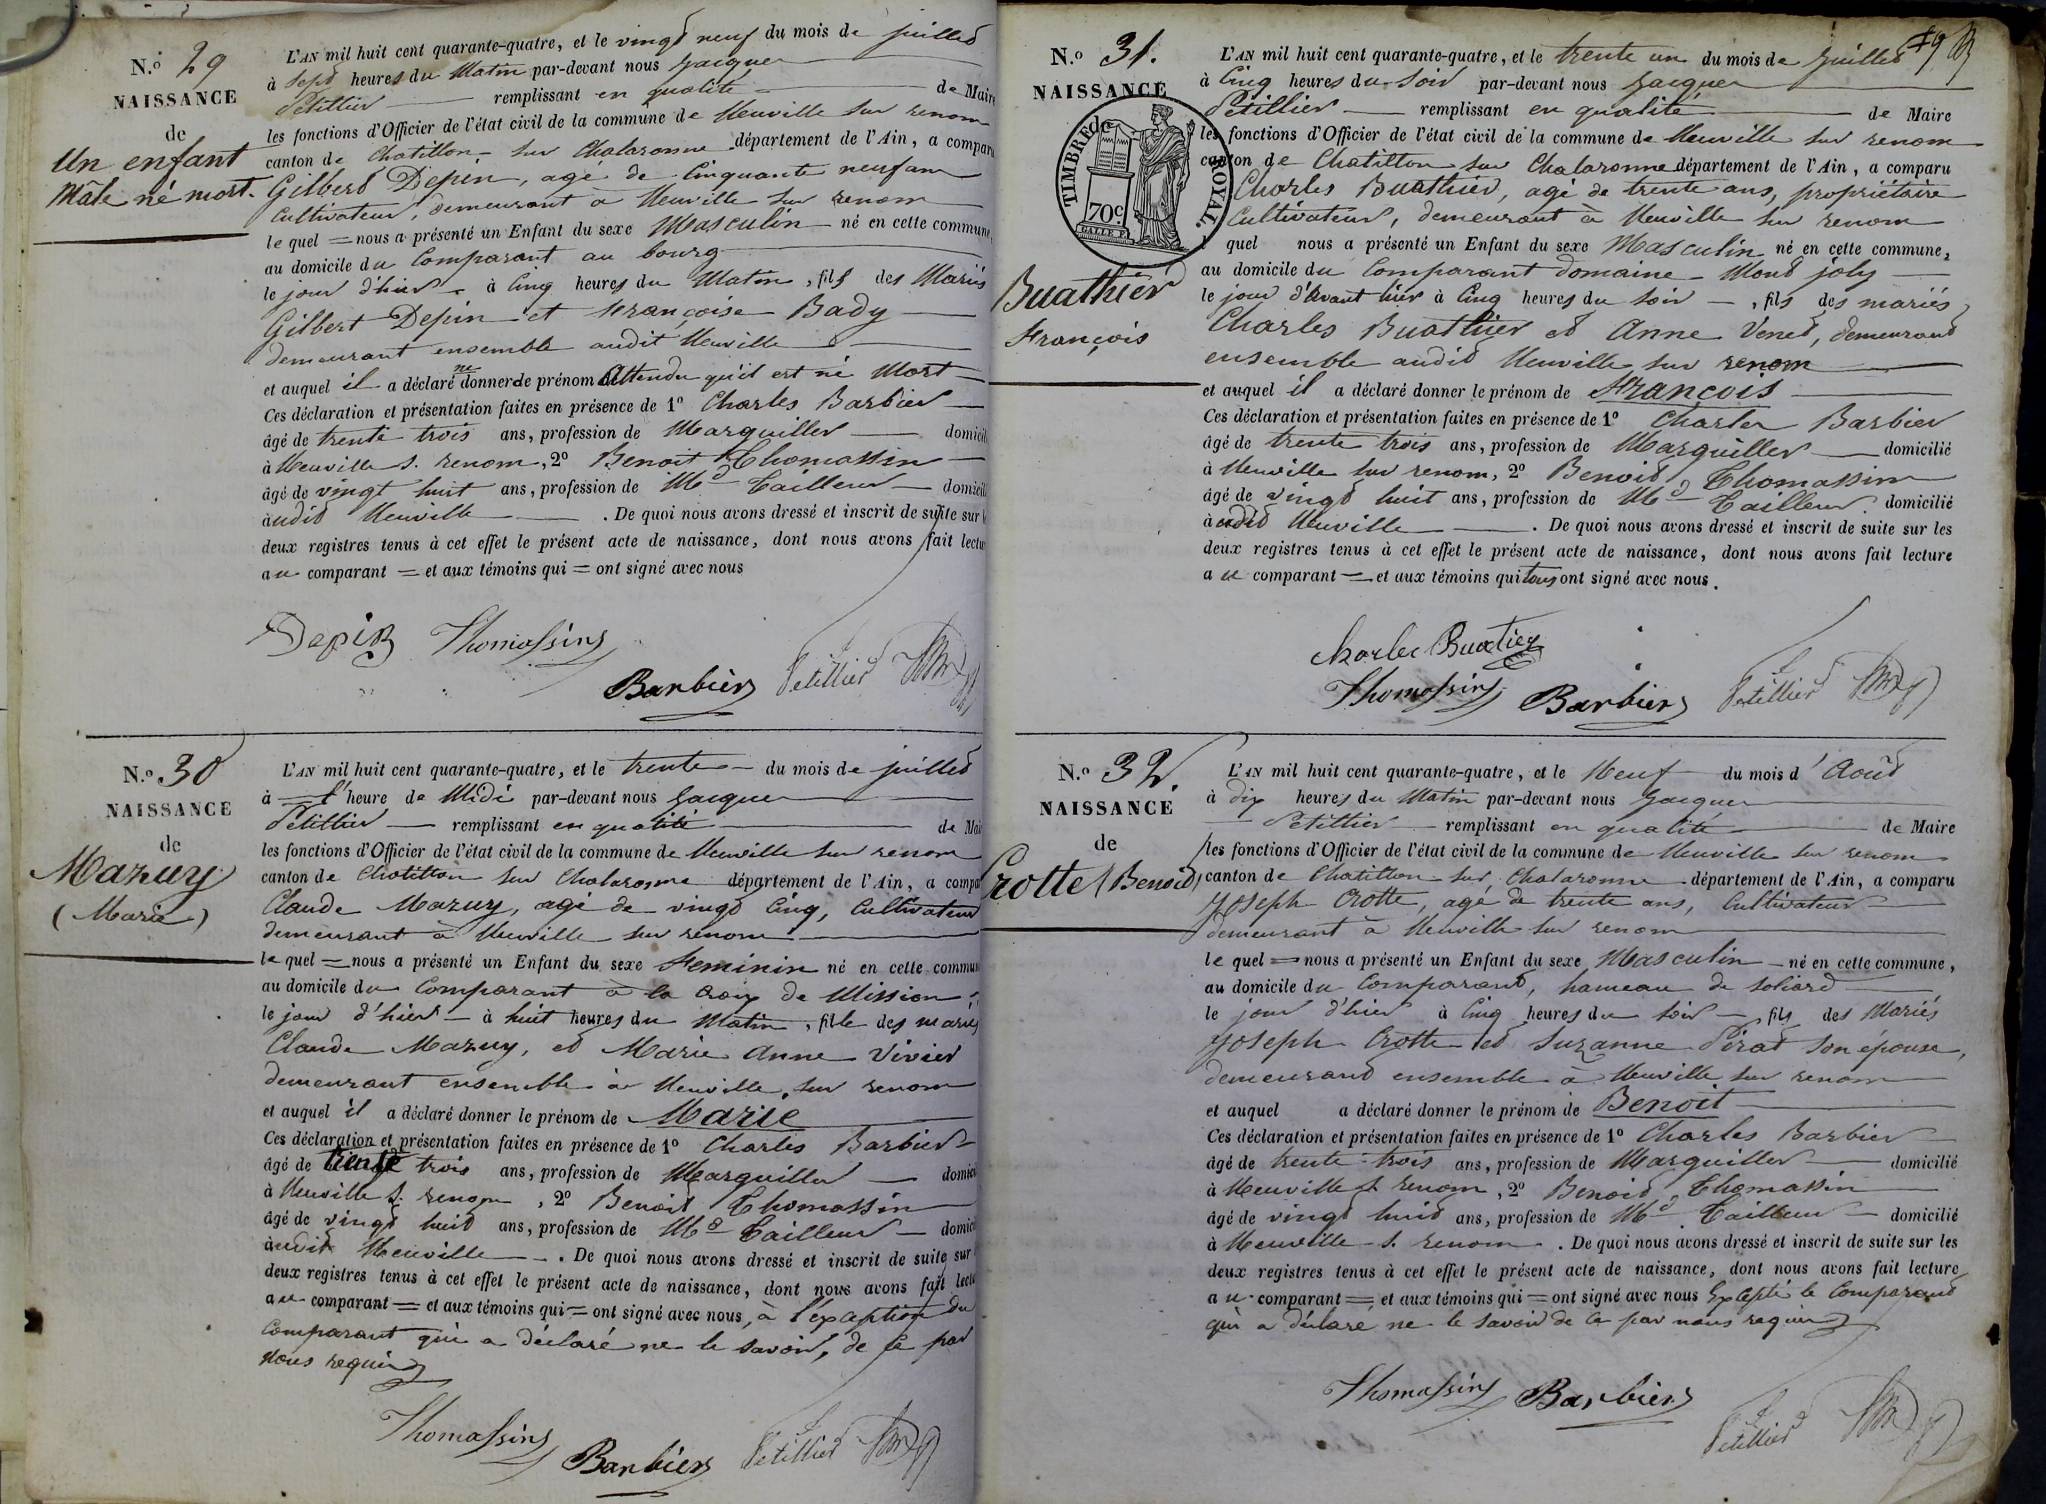 N.o 29
NAISSANCE
de
Un enfant
Mâle né mort.
L'AN mil huit cent quarante-quatre, et le vingt neuf du mois de juillet
à sept heures du Matin par-devant nous Jacques
Petillier remplissant en qualité de Maire
les fonctions d'Officier de l'état civil de la commune de Neuville sur renom
canton de Chatillon sur Chalaronne département de l'Ain, a comparu
Gilbert Depin, agé de Cinquante neuf ans
Cultivateur, demeurant à Neuville sur renom
le quel = nous a présenté un Enfant du sexe Masculin né en cette commune,
au domicile du Comparant au bourg
le jour d'hier à Cinq heures du Matin, fils des Mariés
Gilbert Depin et Françoise Bady
demeurant ensemble audit Neuville
et auquel il a déclaré ne donner de prénom Attendu qu'il est né Mort
Ces déclaration et présentation faites en présence de 1o Charles Barbier
âgé de trente trois ans, profession de Marguiller domicilié
à Neuville s. renom, 2o Benoit Thomassin
âgé de vingt huit ans, profession de Md Tailleur domicilié
audit Neuville . De quoi nous avons dressé et inscrit de suite sur les
deux registres tenus à cet effet le présent acte de naissance, dont nous avons fait lecture
au comparant = et aux témoins qui = ont signé avec nous
Depin Thomassin
Barbier Petillier
N.o 30
NAISSANCE
de
Mazuy
(Marie)
L'AN mil huit cent quarante-quatre, et le trente du mois de juillet
à l'heure de Midi par-devant nous Jacques
Petillier remplissant en qualité de Maire
les fonctions d'Officier de l'état civil de la commune de Neuville sur renom
canton de Chatillon sur Chalaronne département de l'Ain, a comparu
Claude Mazuy, agé de vingt Cinq, Cultivateur
demeurant à Neuville sur renom
le quel = nous a présenté un Enfant du sexe Feminin né en cette commune
au domicile du Comparant à la Croix de Mission
le jour d'hier à huit heures du Matin, fille des mariés
Claude Mazuy, et Marie Anne Vivier
demeurant ensemble à Neuville sur renom
et auquel il a déclaré donner le prénom de Marie
Ces déclaration et présentation faites en présence de 1o Charles Barbier
âgé de trente trois ans, profession de Marguiller domicilié
à Neuville s. renom, 2o Benoit Thomassin
âgé de vingt huit ans, profession de Md Tailleur domicilié
audit Neuville . De quoi nous avons dressé et inscrit de suite sur
deux registres tenus à cet effet le présent acte de naissance, dont nous avons fait lecture
au comparant = et aux témoins qui = ont signé avec nous, à l'exception du
Comparant qui a déclaré ne le savoir, de ce par
nous requis
Thomassin
Barbier Petillier
79
N.o 31.
NAISSANCE
TIMBRE ROYAL.
70c.
DALLE F.
Buathier
François
L'AN mil huit cent quarante-quatre, et le trente un du mois de juillet
à Cinq heures du Soir par-devant nous Jacques
Petillier remplissant en qualité de Maire
les fonctions d'Officier de l'état civil de la commune de Neuville sur renom
canton de Chatillon sur Chalaronne département de l'Ain, a comparu
Charles Buathier, agé de trente ans, propriétaire
Cultivateur, demeurant à Neuville sur renom
l quel nous a présenté un Enfant du sexe Masculin né en cette commune,
au domicile du Comparant domaine Mont joly
le jour d'avant hier à Cinq heures du soir, fils des mariés
Charles Buathier et Anne Venet, demeurant
ensemble audit Neuville sur renom
et auquel il a déclaré donner le prénom de François
Ces déclaration et présentation faites en présence de 1o Charles Barbier
âgé de trente trois ans, profession de Marguiller domicilié
à Neuville sur renom, 2o Benoit Thomassin
âgé de vingt huit ans, profession de Md Tailleur domicilié
audit Neuville . De quoi nous avons dressé et inscrit de suite sur les
deux registres tenus à cet effet le présent acte de naissance, dont nous avons fait lecture
au comparant = et aux témoins qui tous ont signé avec nous.
Charles Buatier
Thomassin Barbier Petillier
N.o 32.
NAISSANCE
de
Crotte (Benoit)
L'AN mil huit cent quarante-quatre, et le Neuf du mois d'Août
à dix heures du Matin par-devant nous Jacques
Petillier remplissant en qualité de Maire
les fonctions d'Officier de l'état civil de la commune de Neuville sur renom
canton de Chatillon sur Chalaronne département de l'Ain, a comparu
Joseph Crotte, agé de trente ans, Cultivateur
demeurant à Neuville sur renom
le quel = nous a présenté un Enfant du sexe Masculin né en cette commune,
au domicile du Comparant, hameau de soliard
le jour d'hier à Cinq heures du soir fils des Mariés
Joseph Crotte et Suzanne Pérat son épouse,
demeurant ensemble à Neuville sur renom
et auquel a déclaré donner le prénom de Benoit
Ces déclaration et présentation faites en présence de 1o Charles Barbier
âgé de trente trois ans, profession de Marguiller domicilié
à Neuville s. renom, 2o Benoit Thomassin
âgé de vingt huit ans, profession de Md Tailleur domicilié
à Neuville s. renom . De quoi nous avons dressé et inscrit de suite sur les
deux registres tenus à cet effet le présent acte de naissance, dont nous avons fait lecture
au comparant = et aux témoins qui = ont signé avec nous Excepté le Comparant
qui a déclaré ne le savoir de ce par nous requis
Thomassin Barbier
Petillier